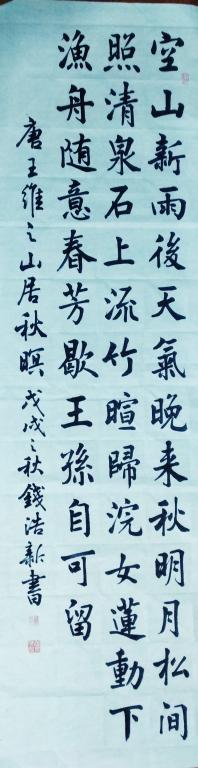 空山新雨後天氣晚来秋明月松间
照清泉石上流竹暄歸浣女蓮動下
渔舟随意春芳歇王孫自可留
唐王維之山居秋暝戊戌之秋錢浩新書